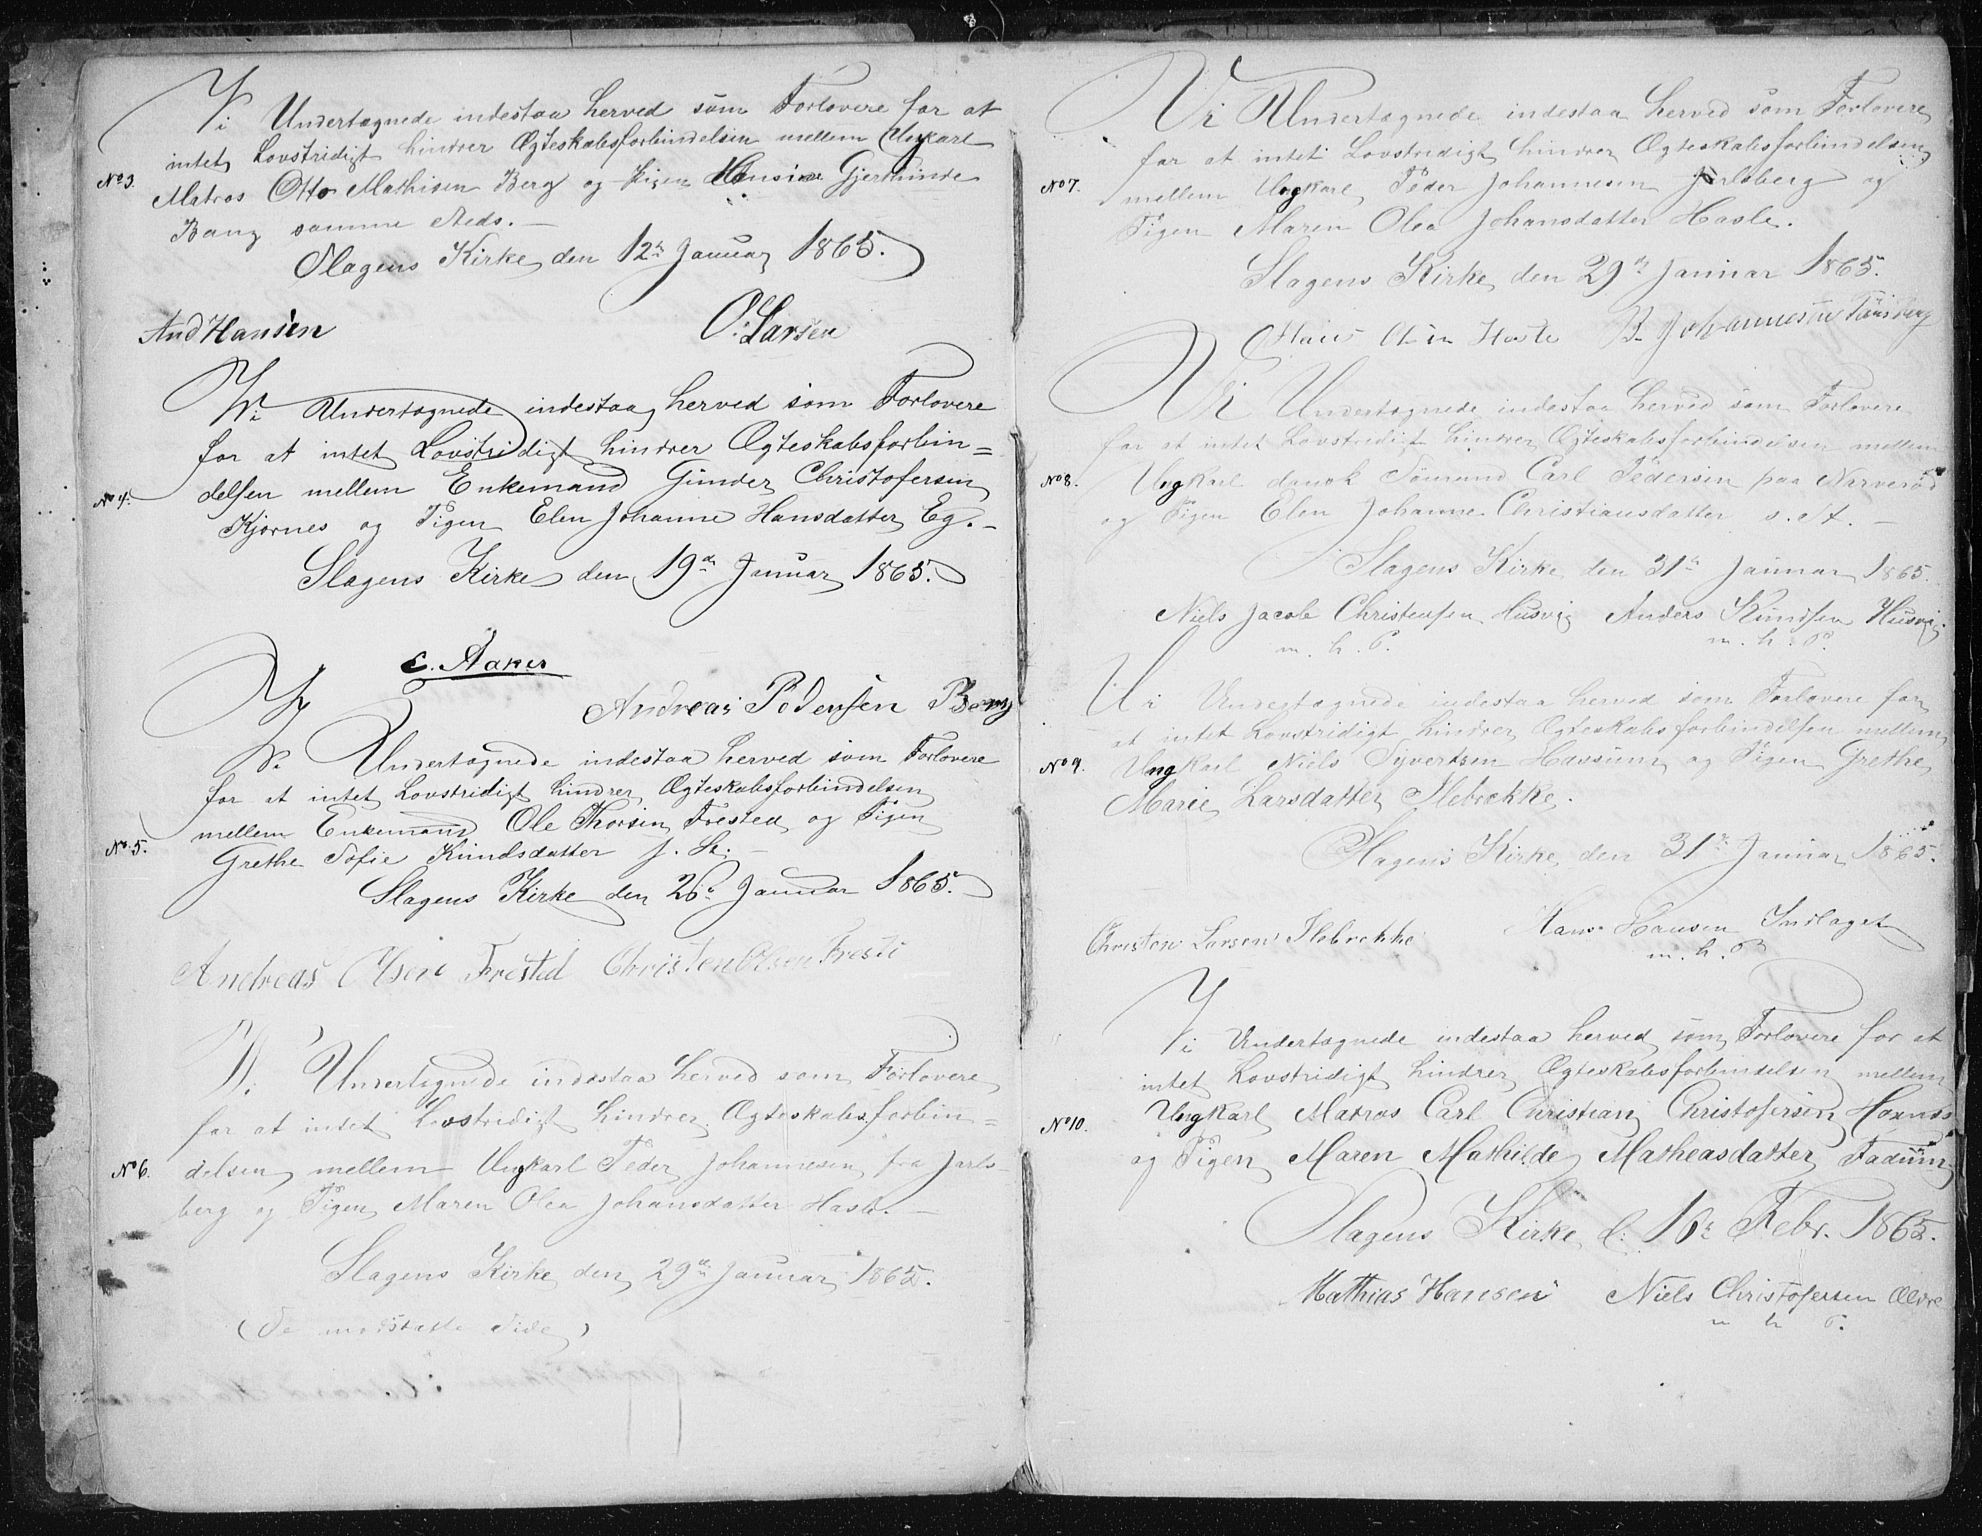 Vi Undertegnede indestaa herved som Forlovere for at
intet Lovstridigt hindrer Ægteskabsforbindelsen mellem Ungkarl
No 3. Matros Otto Mathisen Berg og Pigen Hansine Gjerthinde
Bang samme Steds.
Slagens Kirke den 12te Januar 1865.
And Hansen O. Larsen
Vi Undertegnede indestaa herved som Forlovere
for at intet Lovstridigt hindrer Ægteskabsforbin=
No 4. delsen mellem Enkemand Gunder Christofersen
Kjørnes og Pigen Elen Johanne Hansdatter Eg.
Slagens Kirke den 19de Januar 1865.
C. Aaker
Andreas Pedersen Berg
Vi Undertegnede indestaa herved som Forlovere
for at intet Lovstridigt hindrer Ægteskabsforbindelsen
No 5. mellem Enkemand Ole Thorsen Frested og Pigen
Grethe Sofie Knudsdatter s. St.
Slagens Kirke den 26de Januar 1865.
Andreas Olsen Frestid Christen Olsen Fresti
Vi Undertegnede indestaa herved som Forlovere
for at intet Lovstridigt hindrer Ægteskabsforbin=
No 6. delsen mellem Ungkarl Peder Johannesen fra Jarls-
berg og Pigen Maren Olea Johansdatter Hasle.
Slagens Kirke den 29de Januar 1865.
(Se modstaaende Side)
Vi Undertegnede indestaa herved som Forlovere
for at intet Lovstridigt hindrer Ægteskabsforbindelsen
No 7. mellem Ungkarl Peder Johannesen Jarlsberg og
Pigen Maren Olea Johansdatter Hasle.
Slagens Kirke den 29de Januar 1865.
Hans Olsen Hasle B. Johannesen Tønsberg
Vi Undertegnede indestaa herved som Forlovere
for at intet Lovstridigt hindrer Ægteskabsforbindelsen mellem
No 8. Ungkarl dansk Sømand Carl Pedersen paa Narverød
og Pigen Elen Johanne Christiansdatter s. St.
Slagens Kirke den 31te Januar 1865.
Niels Jacob Christensen Husvig Anders Knudsen Husvig
m. h. P. m. h. P.
Vi Undertegnede indestaa herved som Forlovere for
at intet Lovstridigt hindrer Ægteskabsforbindelsen mellem
No 9. Ungkarl Niels Syvertsen Havsum og Pigen Grethe
Marie Larsdatter Ilebrekke.
Slagens Kirke den 31te Januar 1865.
Christen Larsen Ilebrekke Hans Hansen Indlaget
m. h. P.
Vi Undertegnede indestaa herved som Forlovere for at
intet Lovstridigt hindrer Ægteskabsforbindelsen mellem
No 10. Ungkarl Matros Carl Christian Christofersen
og Pigen Maren Mathilde Matheasdatter Fadum
Slagens Kirke d. 16de Febr. 1865.
Mathias Hansen Niels Christofersen
m h P.